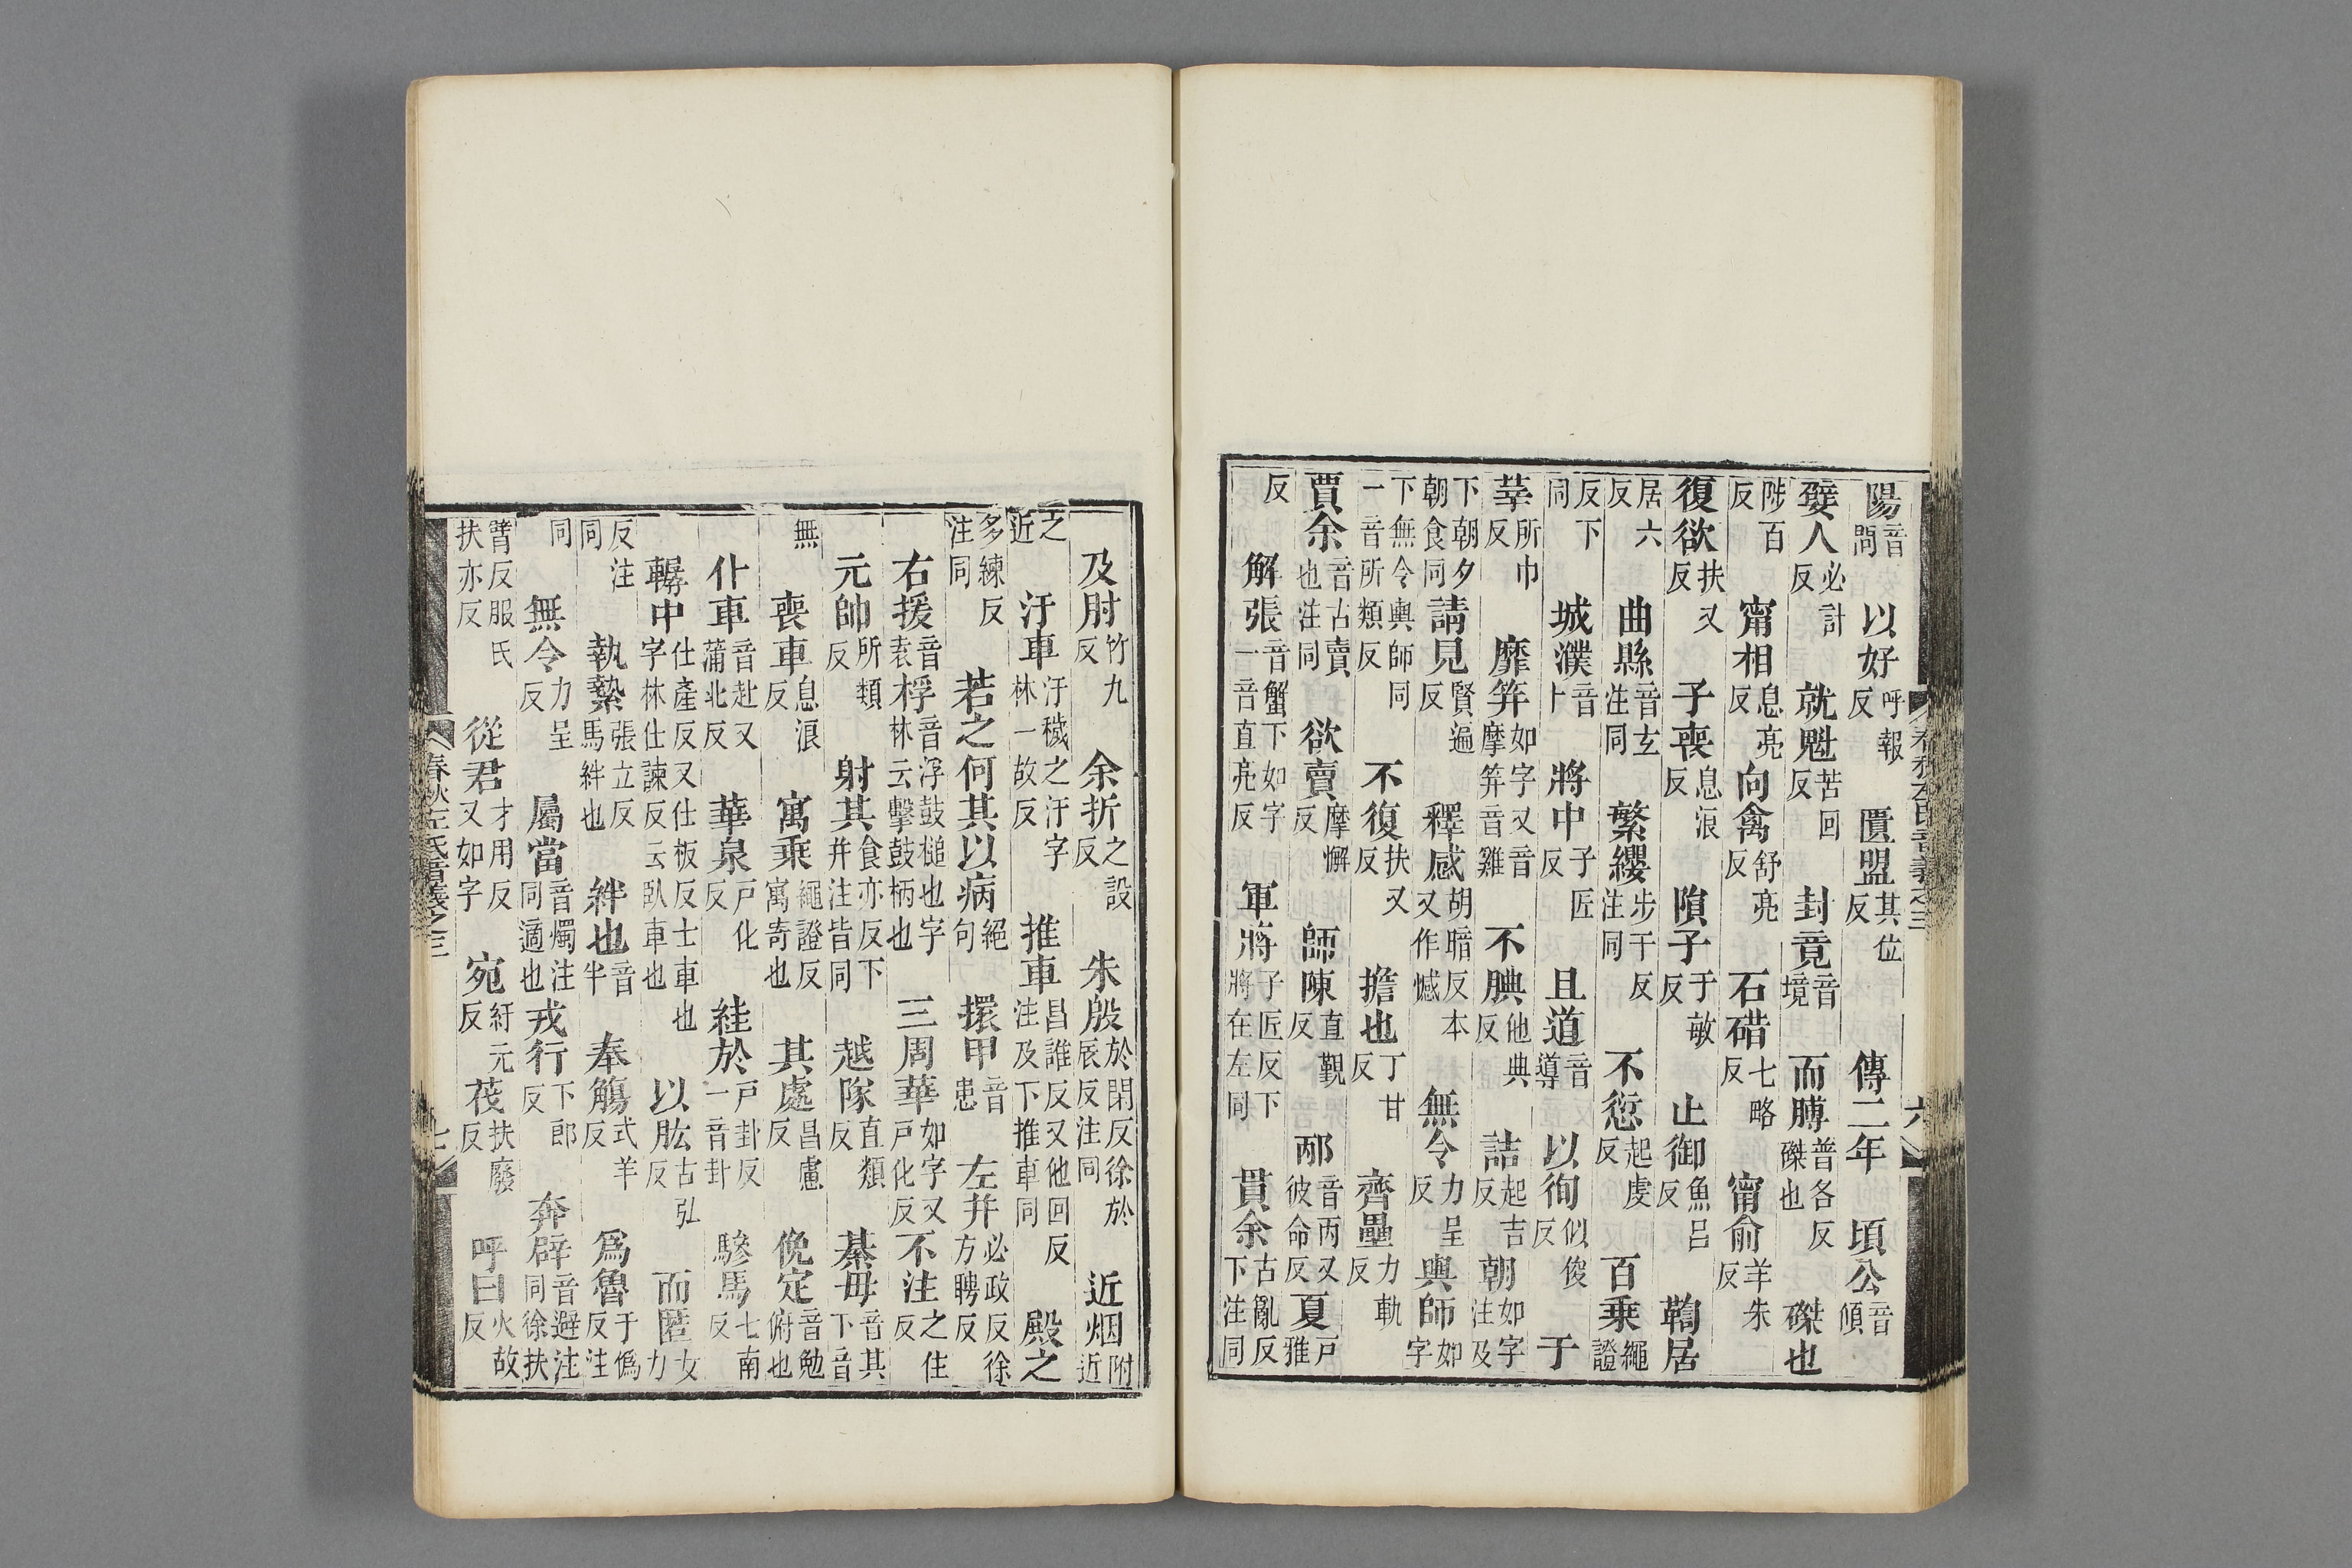 陽音問以好呼報反匱盟其位反傳二年頃公音傾
嬖人必計反就魁苦回反封竟音境而膊普各反磔也磔也
陟百反甯相息亮反向禽舒亮反石碏七略反甯俞羊朱反
復欲扶又反子喪息浪反隕子于敏反止御魚呂反鞫居
居六反曲縣音玄注同繁纓步干反注同不愆起虔反百乘繩證
反下同城濮音卜將中子匠反且道音導以徇似俊反于
莘所巾反靡笄如字又音摩笄音雞不腆他典反詰起吉反朝如字注及
下朝夕朝食同請見賢遍反釋感胡暗反本又作憾無令力呈反輿師如字
下無令輿師同一音所類反不復扶又反擔也丁甘反齊壘力軌反
賈余音古賣也注同欲賣摩懈反師陳直觀反邴音丙又彼命反夏戶雅
反解張音蟹下如字一音直亮反軍將子匠反下將在左同貫余古亂反下注同
春秋左氏音義之三
六
及肘竹九反余折之設反朱殷於閑反徐於辰反注同近烟附近
之近汙車汙穢之汙字林一故反推車昌誰反又他回反注及下推車同殿之
多練反注同若之何其以病絕句擐甲音患左并必政反徐方聘反
右援音袁桴音浮鼓槌也字林云擊鼓柄也三周華如字又戶化反不注之住反
元帥所類反射其食亦反下并注皆同越隊直類反綦毋音其下音
無喪車息浪反寓乘繩證反寓寄也其處昌慮反俛定音勉俯也
仆車音赴又蒲北反華泉戶化反絓於戶卦反一音卦驂馬七南反
轏中仕產反又仕板反士車也字林仕諫反云臥車也以肱古弘反而匿女力
反注同執縶張立反馬絆也絆也音半奉觴式羊反爲魯于僞反注
同無令力呈反屬當音燭注同適也戎行下郎反奔辟音避注同徐扶
臂反服氏扶亦反從君才用反又如字宛紆元反茷扶廢反呼曰火故反
春秋左氏音義之三
七